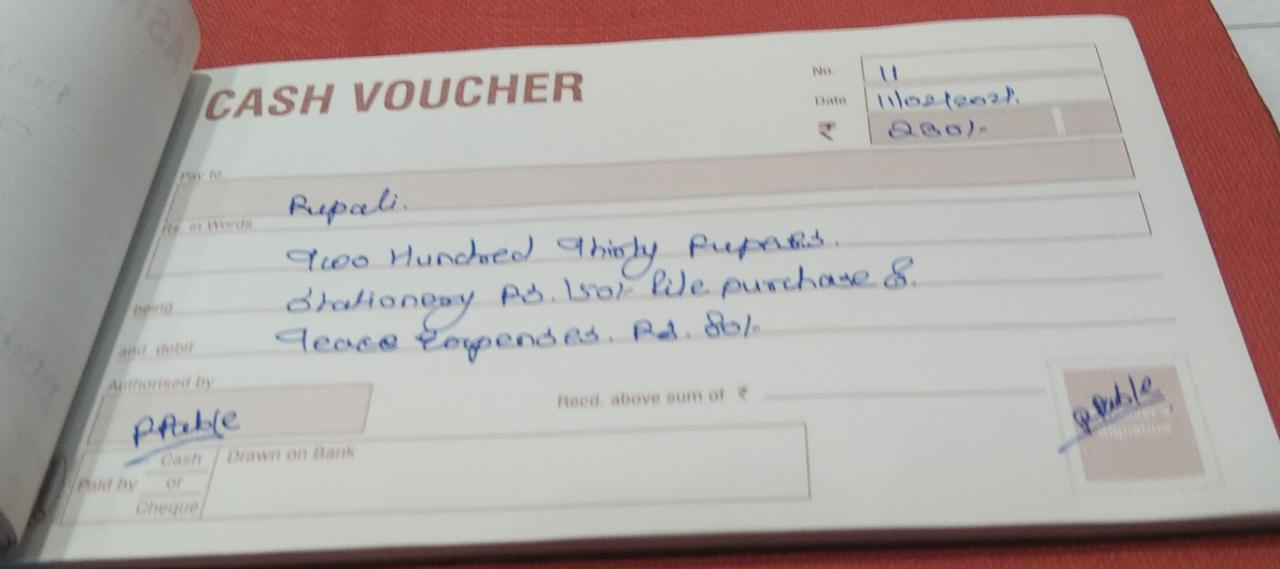 CASH VOUCHER
No. 11
Date 11/02/2021.
₹ 230/-
Pay to Rupali.
Rs. in Words Two Hundred Thirty Rupees.
being Stationery Rs. 150/- file purchase &
and debit Expenses. Rs. 80/-
Authorised by
Recd. above sum of ₹
signature
Paid by Cash or Cheque
Drawn on Bank